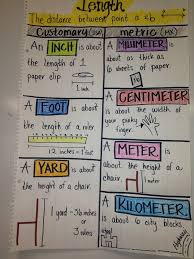 Length
The distance between point a & b
Customary (US)
An INCH is about
the length of 1
paper clip.
1 in
A FOOT is about
the length of a ruler
12 inches = 1 foot
A YARD is about
the height of a chair.
1 yard = 36 inches
or 3
metric (MX)
A MILLIMETER is
about as thick as
6 sheets of paper.
A CENTIMETER is
about the width of
your pinky
finger.
A METER is
about the height of a
chair.
1 meter
A KILOMETER is
about 6 city blocks.